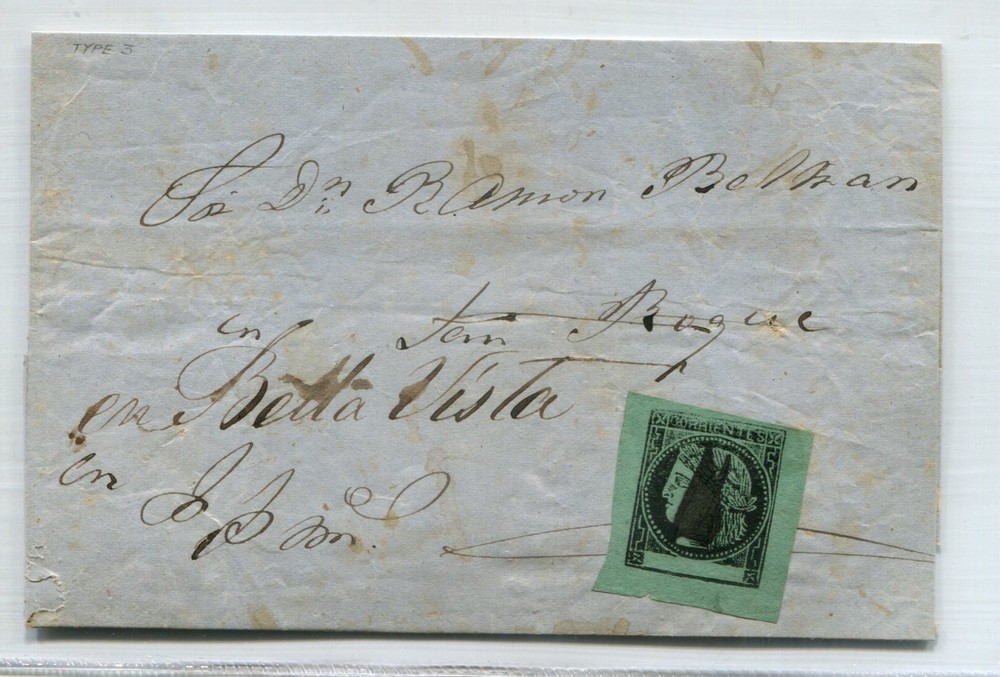 TYPE 3
Sor Dn Ramon Beltran
San Roque
en
en Bella Vista
en
CORRIENTES